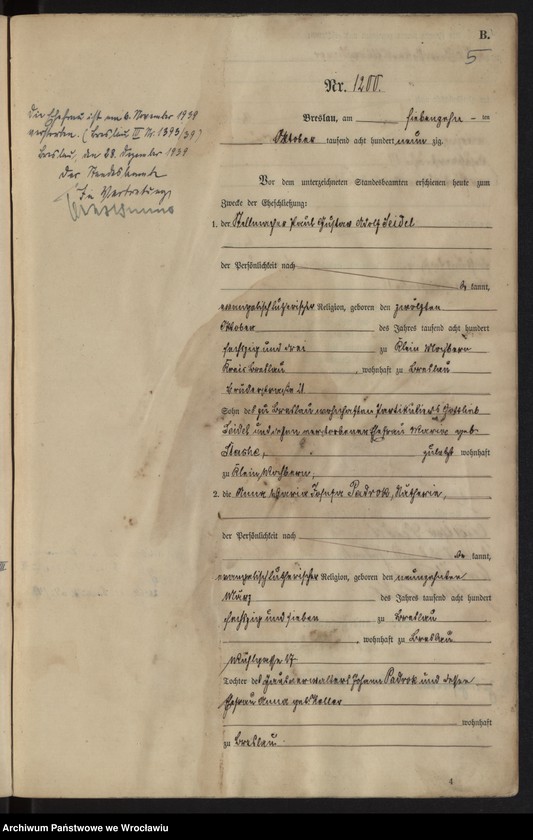 B.
5
Nr. 1200.
Die Ehefrau ist am 6. November 1939
verstorben. (Breslau III Nr. 1393/39)
Breslau, den 28. Dezember 1939
Der Standesbeamte
In Vertretung
Breslau, am siebenzehn - ten
Oktober tausend acht hundert neun zig.
Vor dem unterzeichneten Standesbeamten erschienen heute zum
Zwecke der Eheschließung:
1. der Stellmacher Paul Gustav Adolf Seidel
der Persönlichkeit nach
be kannt,
evangelisch lutherischer Religion, geboren den zwölften
Oktober des Jahres tausend acht hundert
sechszig und drei zu Klein Mochbern
Kreis Breslau, wohnhaft zu Breslau
Brüderstraße 21
Sohn des zu Breslau wohnhaften Partikuliers Gottlieb
Seidel und dessen verstorbener Ehefrau Maria geb.
zuletzt wohnhaft
zu Klein Mochbern,
2. die Anna Maria Josefa Padrok, Nätherin,
der Persönlichkeit nach
be kannt,
evangelisch lutherischer Religion, geboren den neunzehnten
März des Jahres tausend acht hundert
sechszig und sieben zu Breslau
, wohnhaft zu Breslau
17
Tochter des Haushälters Johann Padrok und dessen
Ehefrau Anna geb. Keller
wohnhaft
zu Breslau.
4
Archiwum Państwowe we Wrocławiu